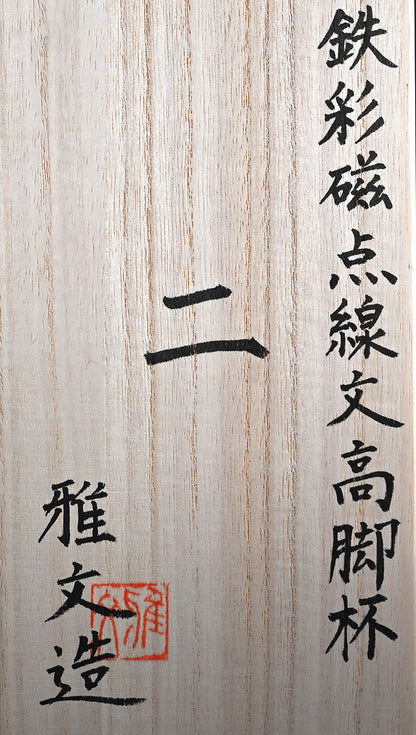 鉄彩磁点線文高脚杯
二
雅文造
雅文